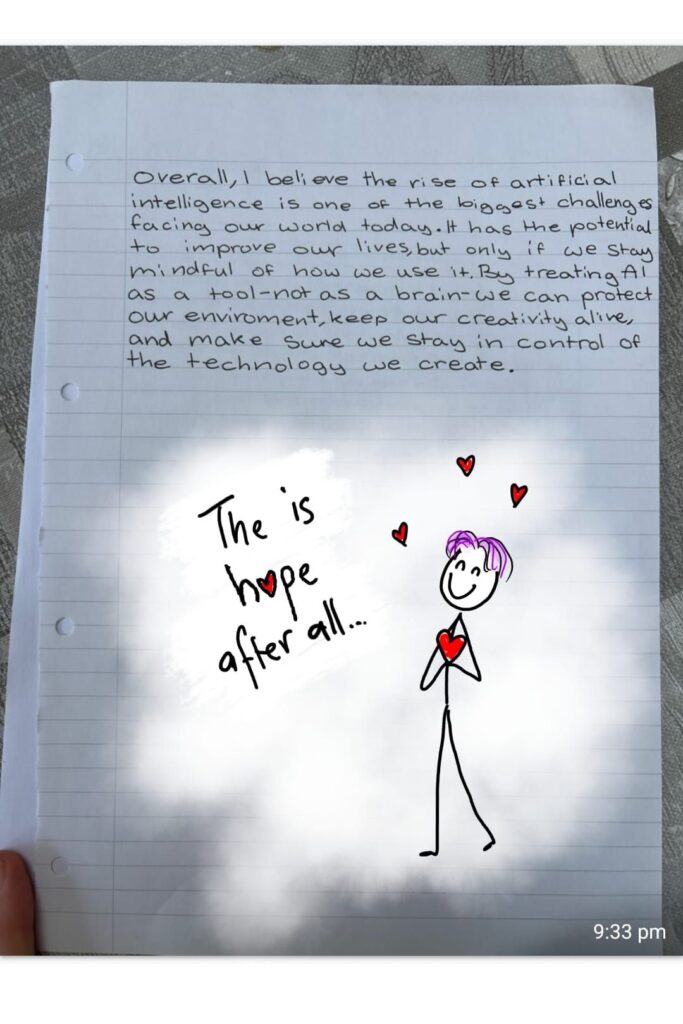 Overall, I believe the rise of artificial
intelligence is one of the biggest challenges
facing our world today. It has the potential
to improve our lives, but only if we stay
mindful of how we use it. By treating AI
as a tool-not as a brain-we can protect
our enviroment, keep our creativity alive,
and make sure we stay in control of
the technology we create.
The is
hope
after all...
9:33 pm